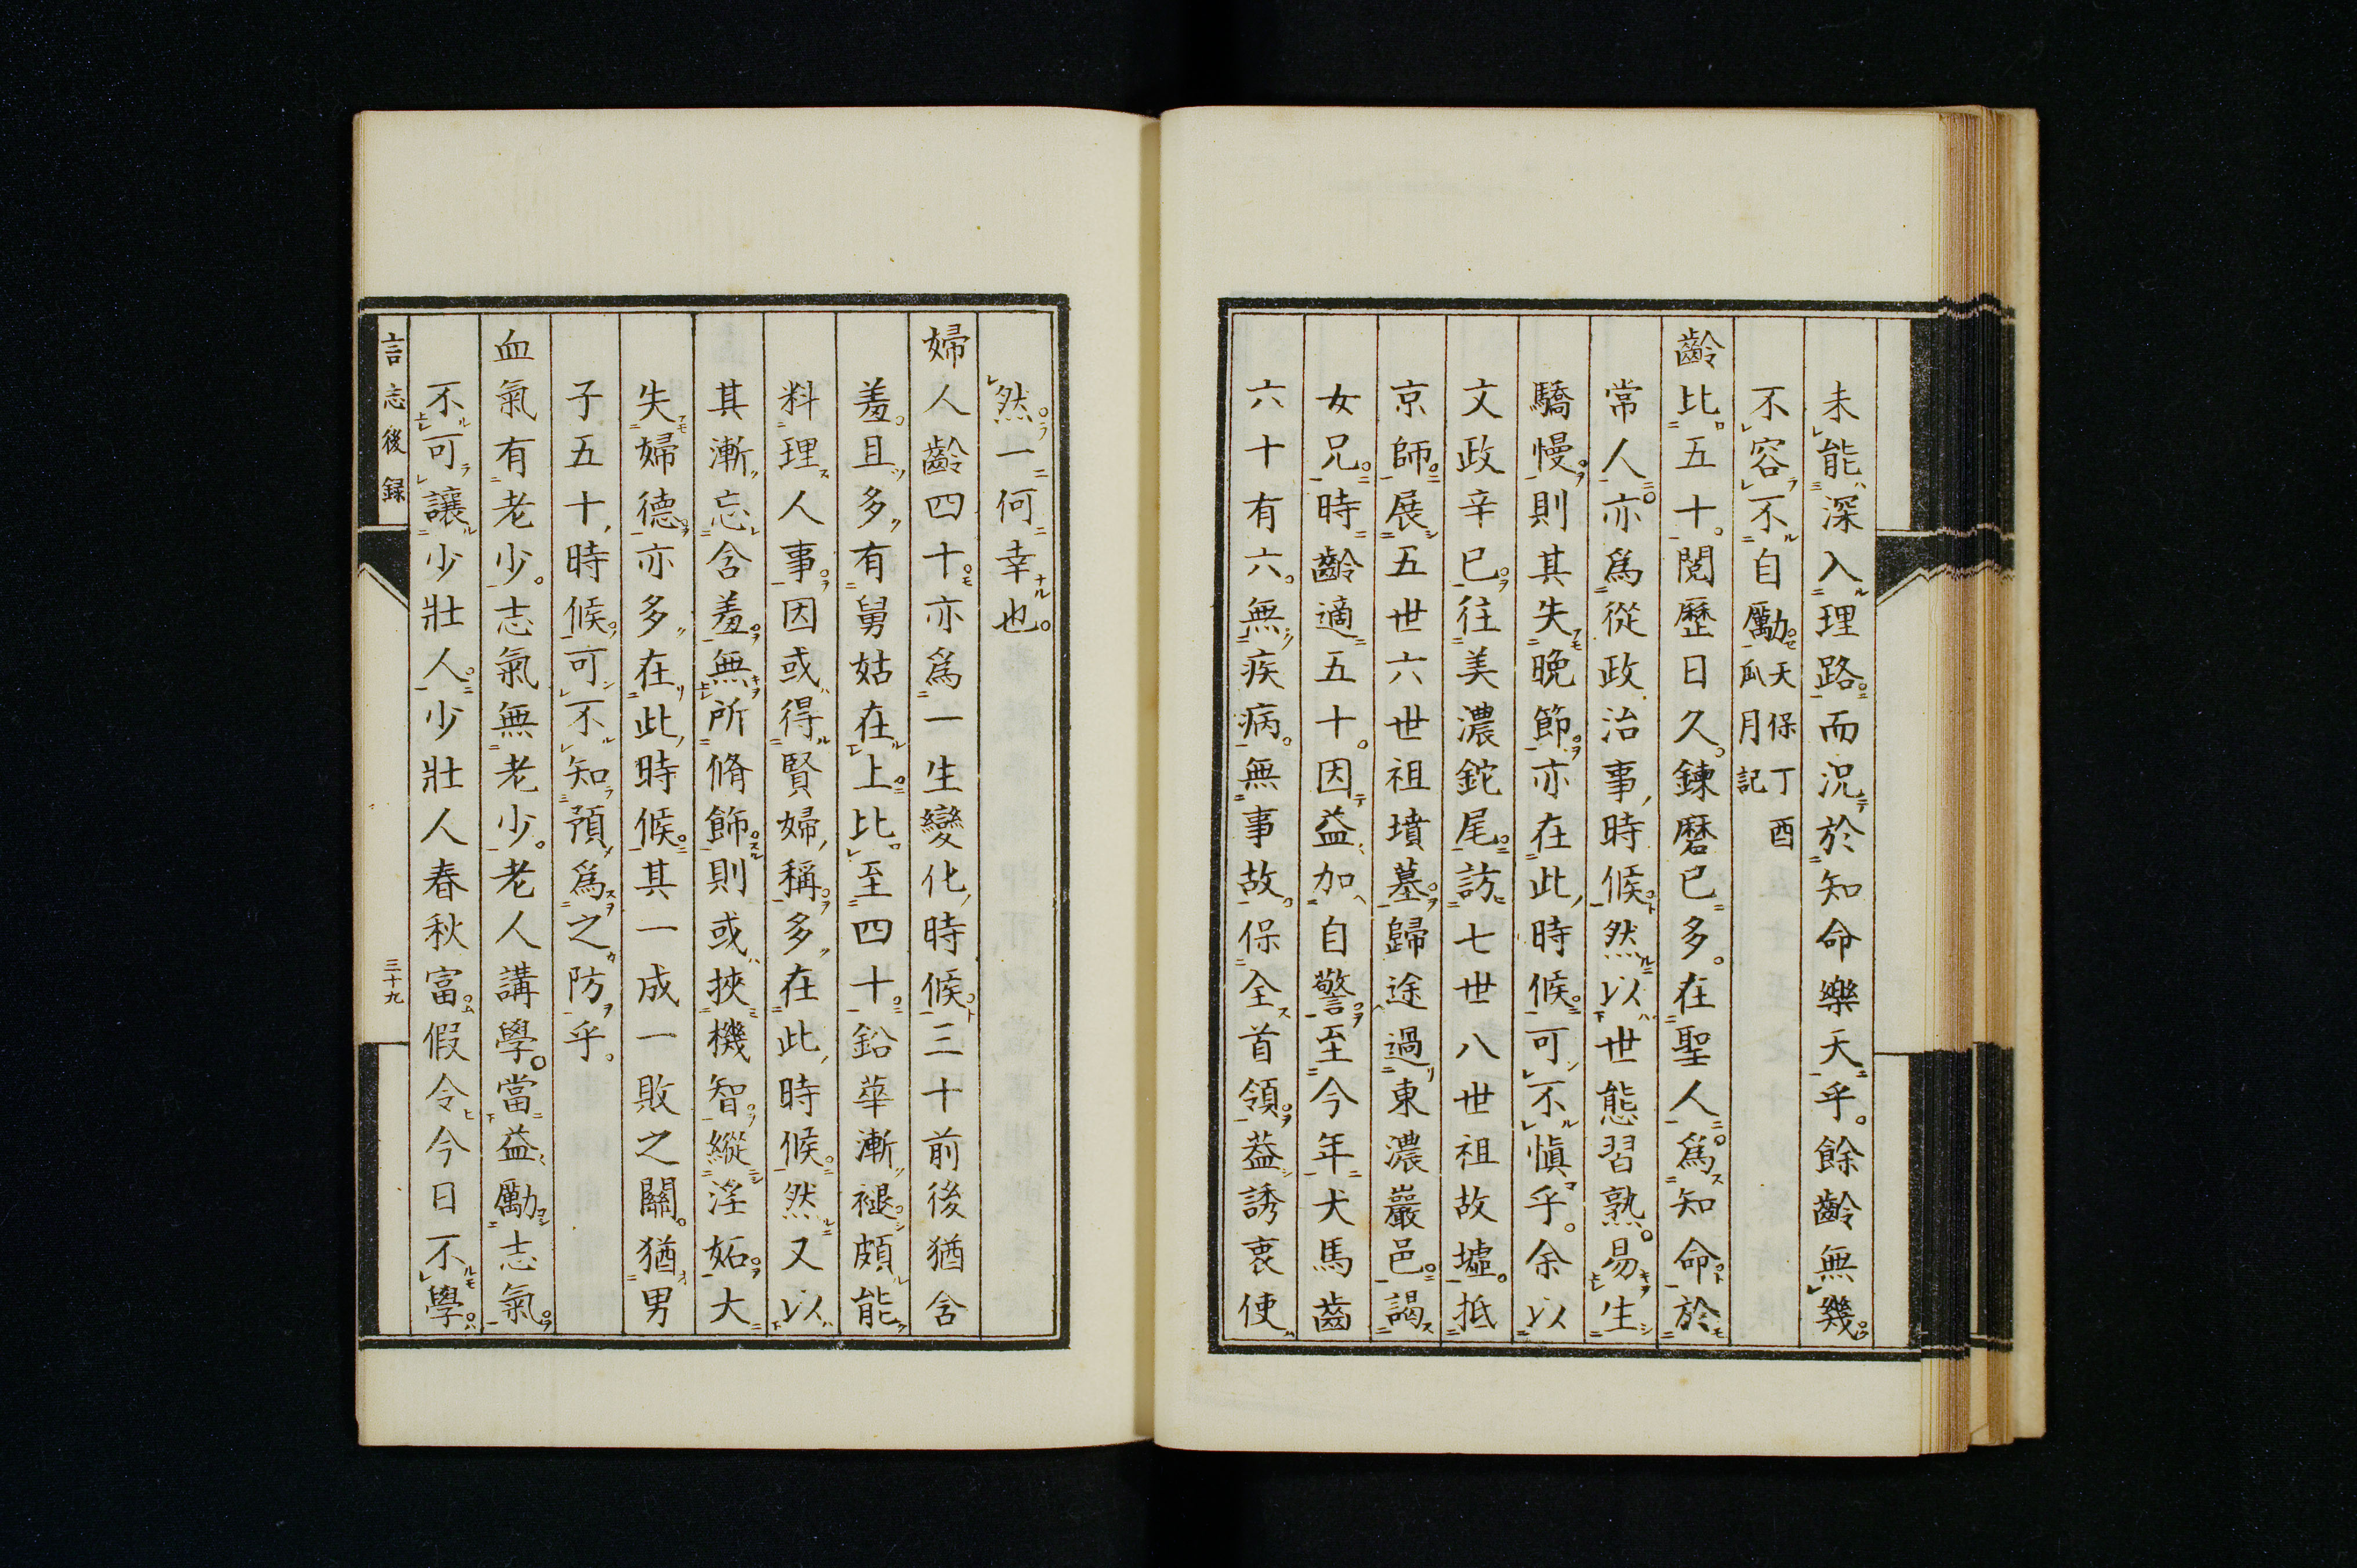 未能深入理路而況於知命樂天乎。餘齡無幾
不容不自勵。天保丁酉
瓜月記
齡比五十。閱歷日久。鍊磨已多。在聖人。爲知命於
常人。亦爲從政治事時候。然以世態習熟。易生
驕慢。則其失晚節。亦在此時候。可不愼乎。余以
文政辛巳。往美濃鉈尾。訪七世八世祖故墟。抵
京師。展五世六世祖墳墓。歸途過東濃巖邑。謁
女兄。時齡適五十。因益加自警。至今年犬馬齒
六十有六。無疾病。無事故。保全首領。葢誘衷使
然。一何幸也。
婦人齡四十。亦爲一生變化時候。三十前後猶含
羞。且多有舅姑在上。比至四十。鉛華漸褪。頗能
料理人事。因或得賢婦稱。多在此時候。然又以
其漸忘含羞。無所脩飾。則或挾機智。縱淫妬。大
失婦德。亦多在此時候。其一成一敗之關。猶男
子五十時候。可不知預爲之防乎。
血氣有老少。志氣無老少。老人講學。當益勵志氣。
不可讓少壯人。少壯人春秋富。假令今日不學。
言志後録
三十九